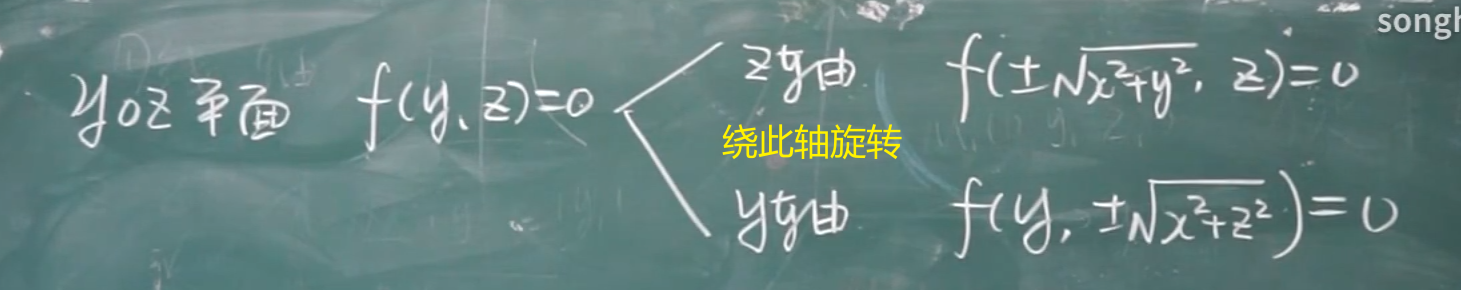 songh
yoz平面 f(y, z)=0
z轴 f(±√x²+y², z)=0
绕此轴旋转
y轴 f(y, ±√x²+z²)=0